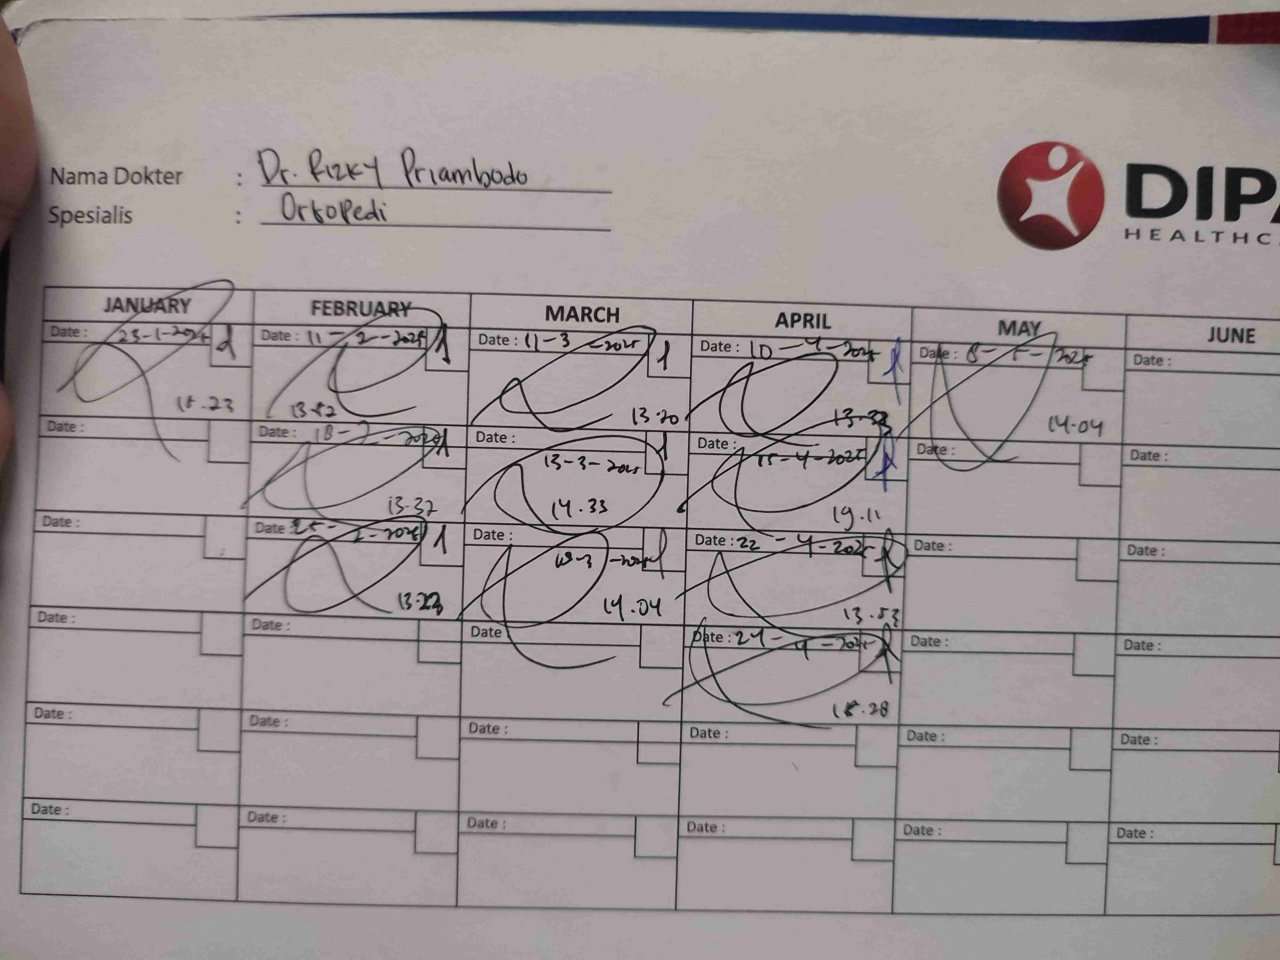 Nama Dokter : Dr. Rizky Priambodo
Spesialis : Ortopedi
DIPA
HEALTHC
JANUARY FEBRUARY MARCH APRIL MAY JUNE
Date : 23-1-2025 Date : 11-2-2025 Date : 11-3-2025 Date : 10-4-2025 Date : 8-5-2025 Date :
15.23 13.52 13.20 13.33 14.04
Date : Date : 18-2-2025 Date : 13-3-2025 Date : 15-4-2025 Date : Date :
13.37 14.33 19.11
Date : Date : 25-2-2025 Date : -3-2025 Date : 22-4-2025 Date : Date :
13.23 14.04 13.53
Date : Date : Date Date : 24-4-2025 Date : Date :
15.28
Date : Date : Date : Date : Date : Date :
Date : Date : Date : Date : Date : Date :